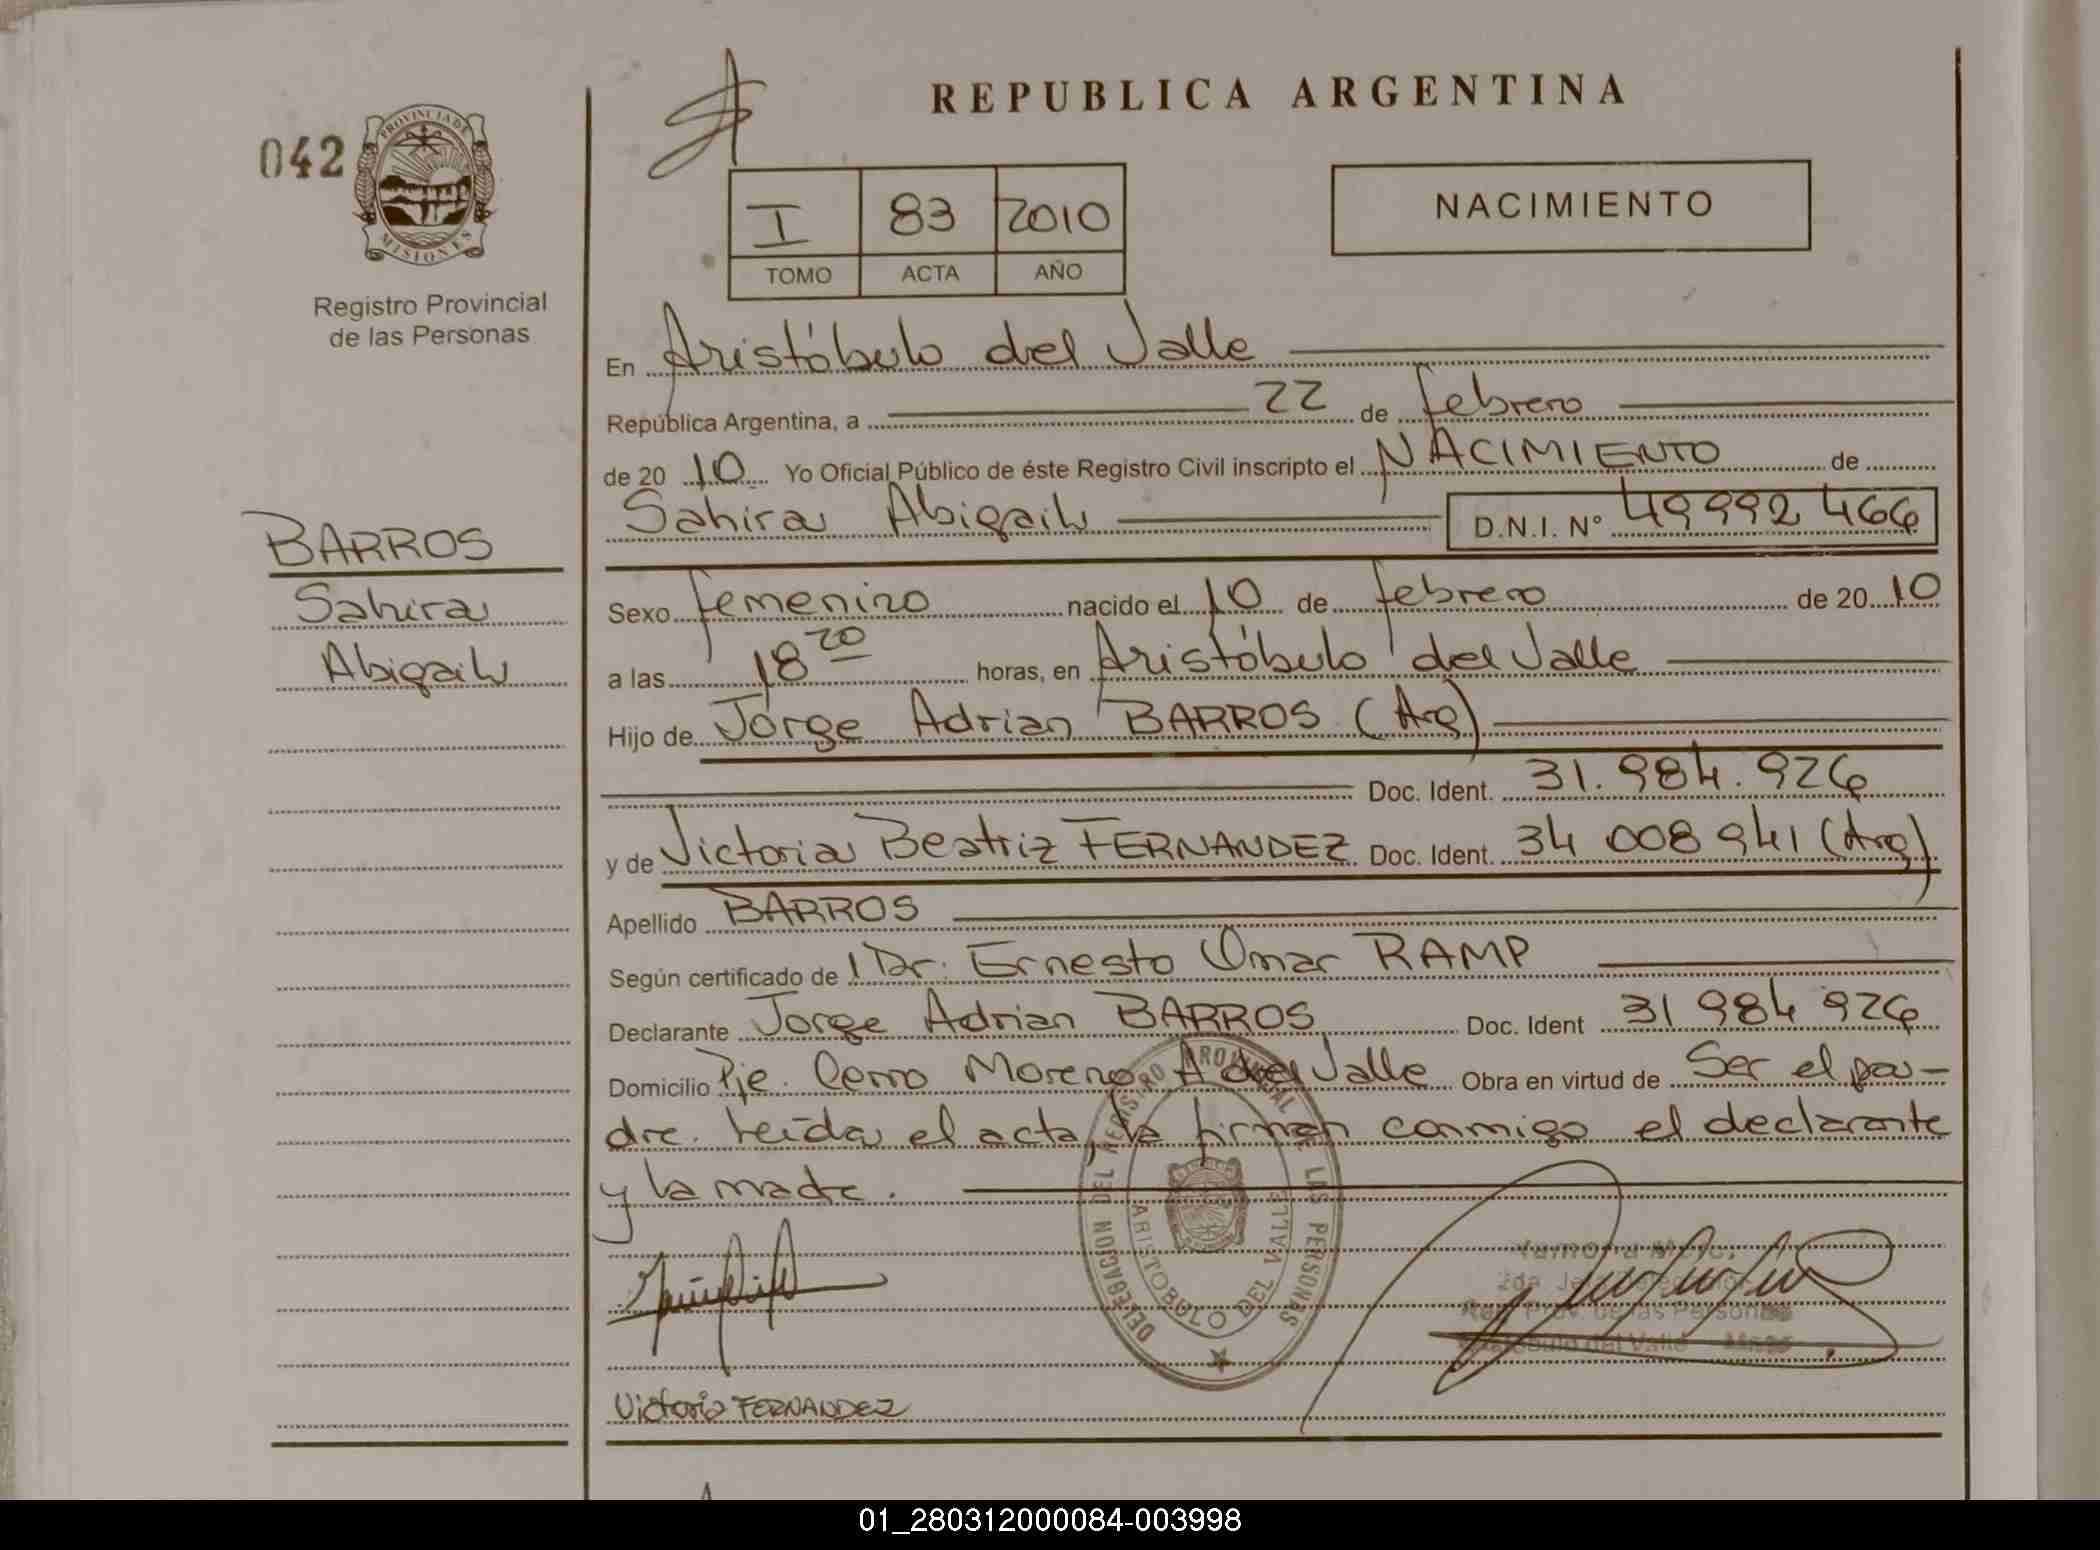 REPUBLICA ARGENTINA
042
PROVINCIA DE
MISIONES
Registro Provincial
de las Personas
I 83 2010
TOMO ACTA AÑO
NACIMIENTO
En Aristóbulo del Valle
República Argentina, a 22 de febrero
de 20 10 Yo Oficial Público de éste Registro Civil inscripto el NACIMIENTO de
Sahira Abigail D.N.I. N° 49 992 466
BARROS
Sahira
Abigail
Sexo femenino nacido el 10 de febrero de 20 10
a las 18 20 horas, en Aristóbulo del Valle
Hijo de Jorge Adrian BARROS (Arg)
Doc. Ident. 31.984.926
y de Victoria Beatriz FERNANDEZ Doc. Ident. 34 008 941 (Arg)
Apellido BARROS
Según certificado de Dr. Ernesto Omar RAMP
Declarante Jorge Adrian BARROS Doc. Ident 31 984 926
Domicilio Pje. Cerro Moreno A del Valle Obra en virtud de Ser el pa-
dre. Leída el acta, la firman conmigo el declarante
y la madre.
DELEGACION DEL REGISTRO PROVINCIAL DE LAS PERSONAS
ARISTOBULO DEL VALLE
Prov. de las Personas
del Valle
Victoria FERNANDEZ
01_280312000084-003998